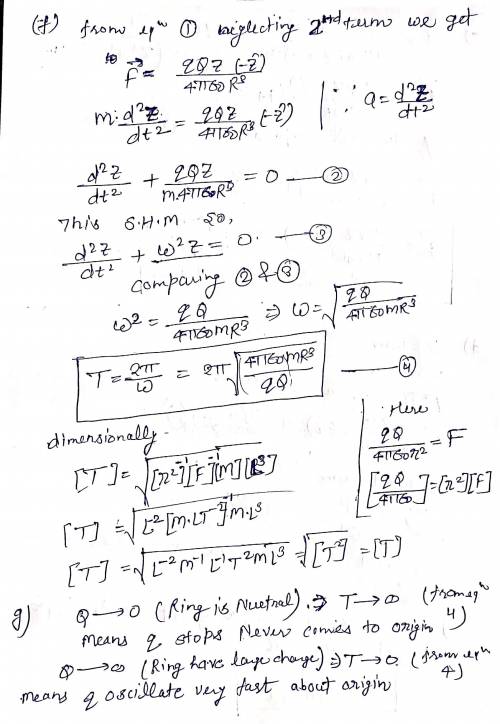 (f) from eqn ① neglecting 2nd term we get
F⃗ = qQZ(-ẑ) / 4πϵ0R³
m·d²z/dt² = qQZ/4πϵ0R³ (-ẑ) | ∵ a = d²z/dt²
d²z/dt² + qQZ/m4πϵ0R³ = 0 — ②
This S.H.M so,
d²z/dt² + ω²z = 0. — ③
Comparing ② & ③
ω² = qQ/4πϵ0mR³ ⇒ ω = √(qQ/4πϵ0mR³)
T = 2π/ω = 2π√(4πϵ0mR³/qQ) — ④
Here
qQ/4πϵ0r² = F
[qQ/4πϵ0] = [r²][F]
dimensionally
[T] = √([r²]⁻¹[F]⁻¹[M][R³])
[T] = √(L⁻²[M·LT⁻²]⁻¹M·L³)
[T] = √(L⁻²M⁻¹L⁻¹T²ML³) = √[T²] = [T]
g) Q → 0 (Ring is Nuetral) ⇒ T → ∞ (from eqn 4)
means q stops Never comes to origin
Q → ∞ (Ring have large charge) ⇒ T → 0. (from eqn 4)
means q oscillate very fast about origin